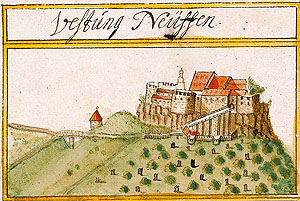 Vestung Neuffen